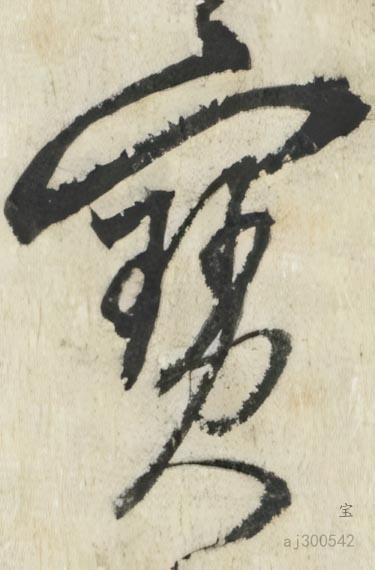 寶
宝
aj300542